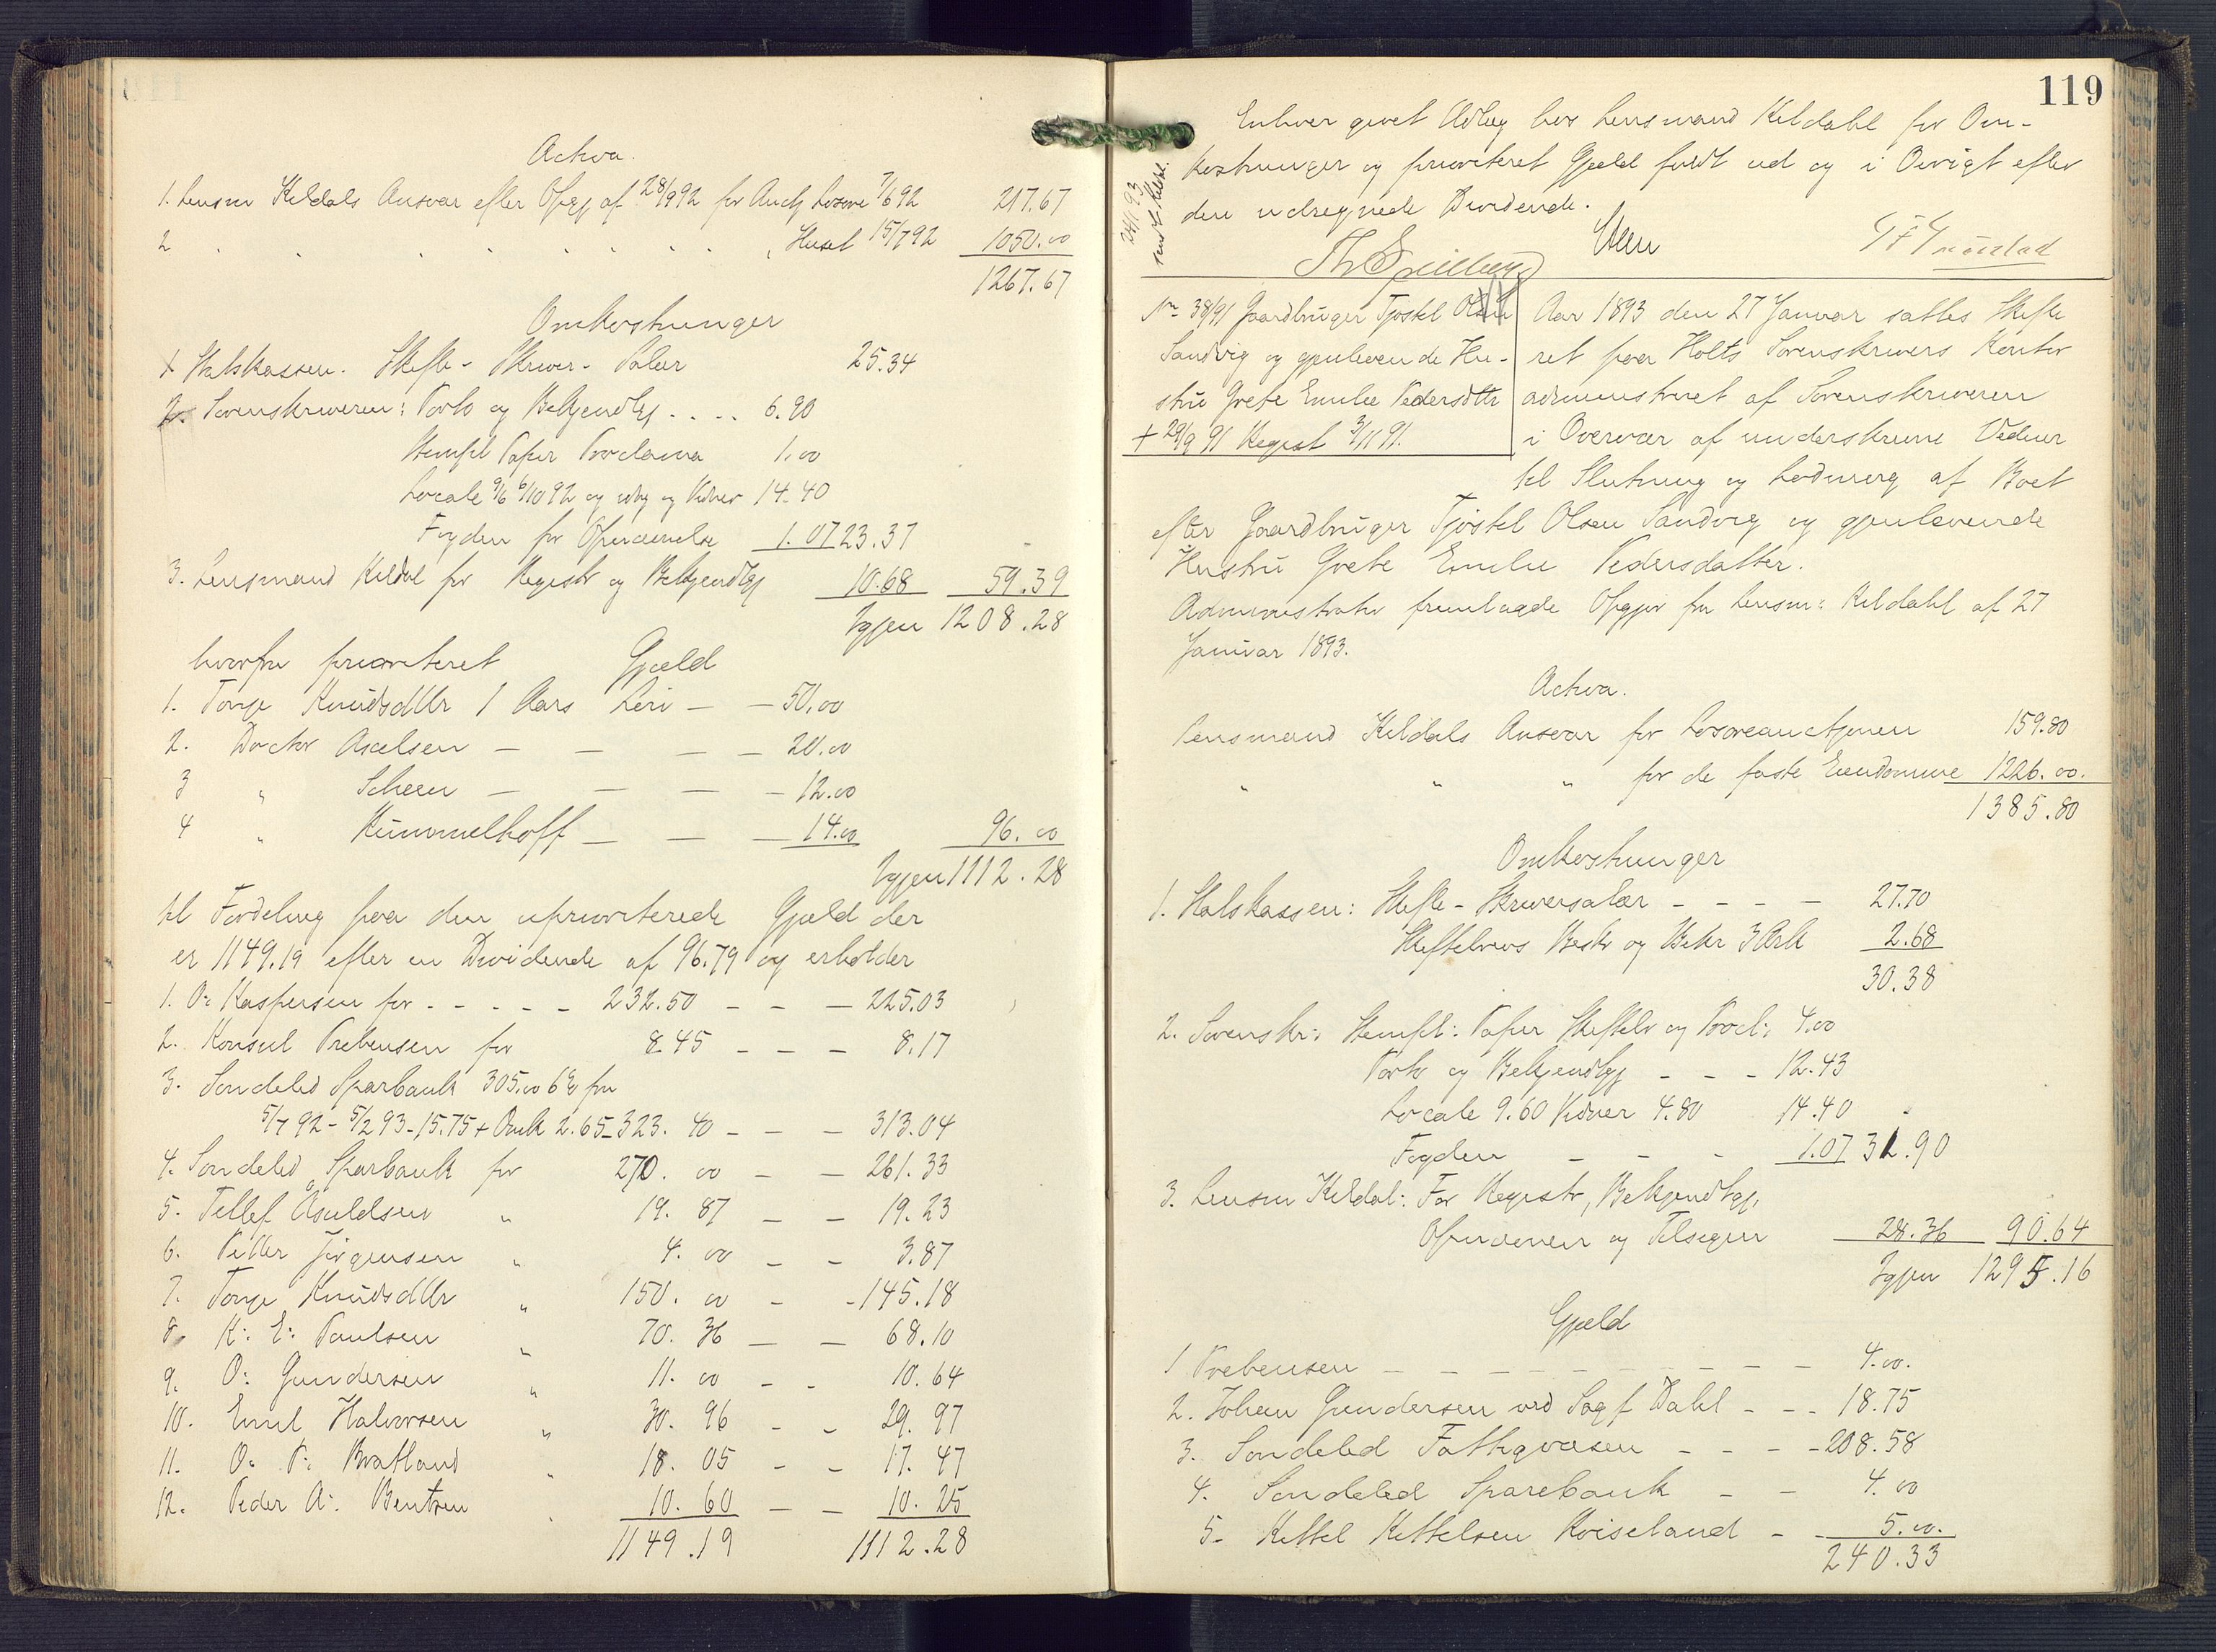 Activa.
1. Lensm Kildals Ansvar efter Opgj af 28/9 92 for Auctj Løsøre 7/6 92 217.67
2 " " " " " " " " Huset 15/7 92 1050.00
1267.67
Omkostninger
1 Statskassen. Skifte- Skriver- Salær 25.34
2. Sorenskriveren: Porto og Bekjendtgj .... 6.90
Stempl Papir Proclama 1.00
Locale 9/6 6/10 92 og udlg og Vidner 14.40
Fogden for Opnævnelse 1.07 23.37
3. Lensmand Kildal for Registr og Bekjendtgj 10.68 59.39
Igjen 1208.28
hvorfra prioriteret Gjæld
1. Tonje Knudsdttr 1 Aars Løn — — 50.00
2. Doctor Axelsen — — — — 20.00
3 " Scheen — — — — 12.00
4 " Kummelhoff — — — 14.00 96.00
Igjen 1112.28
til Fordeling paa den uprioriterede Gjæld der
er 1149.19 efter en Dividende af 96.79 og erholder
1. O: Kaspersen for - - - - - 232.50 - - - 225.03
2. Konsul Prebensen for 8.45 - - - 8.17
3. Søndeled Sparbank 305.00 6% fra
5/4 92 - 5/2 93 - 15.75 + Omk 2.65 - 323.40 - - - 313.04
4. Søndeled Sparbank for 270.00 - - 261.33
5. Tellef Åsuldsen " 19.87 - - 19.23
6. Petter Jørgensen " 4.00 - - 3.87
7. Tonje Knudsdttr " 150.00 - - 145.18
8. K: E: Paulsen " 70.36 — — 68.10
9. O: Gundersen " 11.00 - - 10.64
10. Emil Halvorsen " 30.96 - - 29.97
11. O: P: Bratland " 18.05 - - 17.47
12. Peder A: Bentsen " 10.60 - — 10.25
1149.19 1112.28
119
Enhver givet Udlæg hos Lensmand Kildahl for Om-
kostninger og prioriteret Gjæld fuldt ud og i Øvrigt efter
den udregnede Dividende.
24/1 93
Steen
No 38/91 Gaardbruger Tjostel Olsen
Sandvig og gjenlevende Hu-
stru Grete Emilie Pedersdttr
+ 29/9 91 Regist 3/11 91.
Aar 1893 den 27 Januar sattes Skifte
ret paa Holts Sorenskrivers Kontor
administreret af Sorenskriveren
i Overvær af underskrevne Vidner
til Slutning og Lodning af Boet
efter Gaardbruger Tjøstel Olsen Sandvig og gjenlevende
Hustru Grete Emilie Pedersdatter.
Administrator fremlagde Opgjør fra Lensm: Kildahl af 27
Januar 1893.
Activa.
Lensmand Kildals Ansvar for Løsøreauctjonen 159.80
" " " for de faste Eiendomme 1226.00.
1385.80
Omkostninger
1. Statskassen: Skifte- Skriversalær - - - - 27.70
Skiftebrevs Beskr og Bekr 3 Ark 2.68
30.38
2. Sorenskr: Stempl: Papir Skiftebr og Procl: 4.00
Porto og Bekjendtgj - - - 12.43
Locale 9.60 Vidner 4.80 14.40
Fogden - - - 1.07 31.90
3. Lensm Kildal: For Registr, Bekjendtgj,
Opnævnen og Tilsigen 28.36 90.64
Igjen 1295.16
Gjæld
1 Prebensen - - - - - - - - - 4.00.
2. Johan Gundersen ved Sagf Dahl - - - 18.75
3. Søndeled Fattigvæsen - - - - 208.58
4. Søndeled Sparebank - - 4.00
5. Kittel Kittelsen Kviseland - - 5.00.
240.33